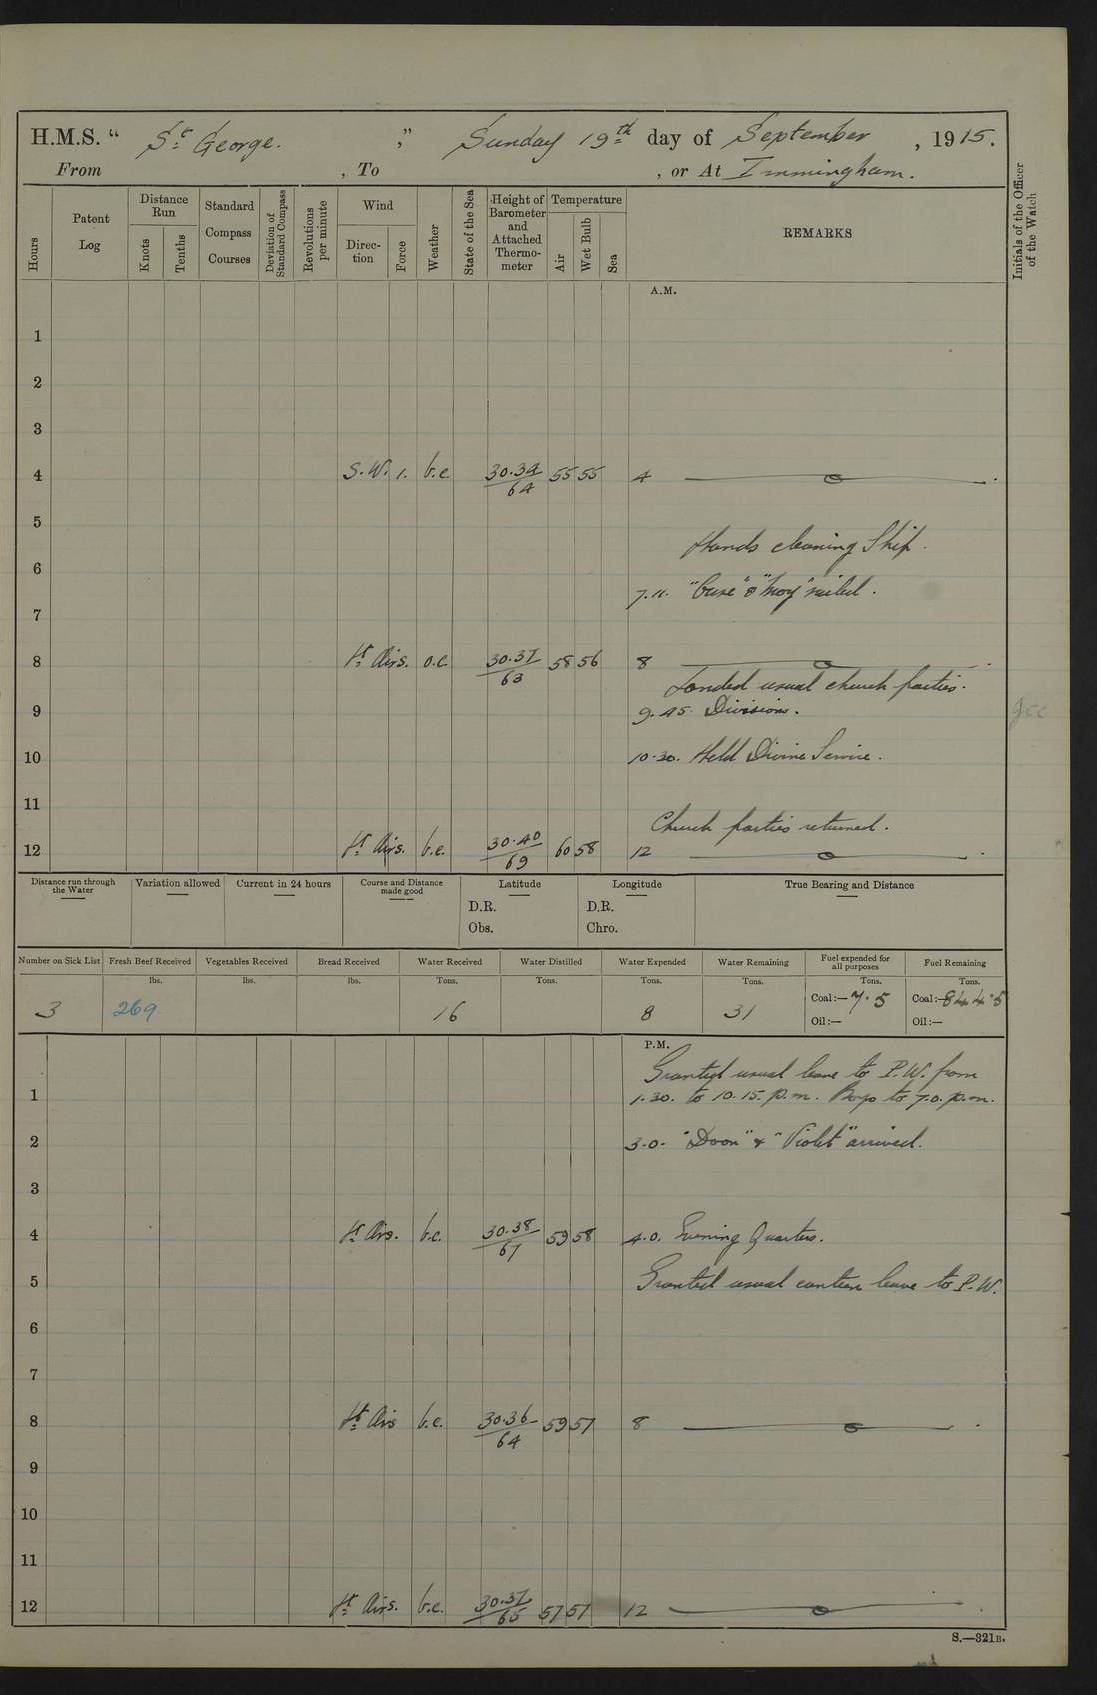 H.M.S. " St George. " Sunday 19th day of September, 1915.
From , To , or At Immingham.
Hours
Patent Log
Distance Run
Knots
Tenths
Standard Compass Courses
Deviation of Standard Compass
Revolutions per minute
Wind
Direction
Force
Weather
State of the Sea
Height of Barometer and Attached Thermometer
Temperature
Air
Wet Bulb
Sea
REMARKS
Initials of the Officer of the Watch
A.M.
1
2
3
4 S.W. 1. b.c. 30.34/64 55 55 4
5
Hands cleaning Ship.
6
7.11. " " & "Moy" sailed.
7
8 Lt Airs. o.c. 30.37/63 58 56 8
Landed usual church parties.
9 9.45. Divisions.
10 10.30. Held Divine Service.
11
Church parties returned.
12 Lt Airs. b.c. 30.40/69 60 58 12
Distance run through the Water
Variation allowed
Current in 24 hours
Course and Distance made good
Latitude
D.R.
Obs.
Longitude
D.R.
Chro.
True Bearing and Distance
Number on Sick List
3
Fresh Beef Received
lbs.
269
Vegetables Received
lbs.
Bread Received
lbs.
Water Received
Tons.
16
Water Distilled
Tons.
Water Expended
Tons.
8
Water Remaining
Tons.
31
Fuel expended for all purposes
Tons.
Coal:— 7.5
Oil:—
Fuel Remaining
Tons.
Coal:— 844.5
Oil:—
P.M.
Granted usual leave to P.W. from
1 1.30. to 10.15. p.m. Boys to 7.0. p.m.
2 3.0. "Doon" & "Violet" arrived.
3
4 Lt Airs. b.c. 30.38/67 59 58 4.0. Evening Quarters.
5 Granted usual canteen leave to P.W.
6
7
8 Lt Airs b.c. 30.36/64 59 57 8
9
10
11
12 Lt Airs. b.c. 30.37/65 57 57 12
S.—321B.